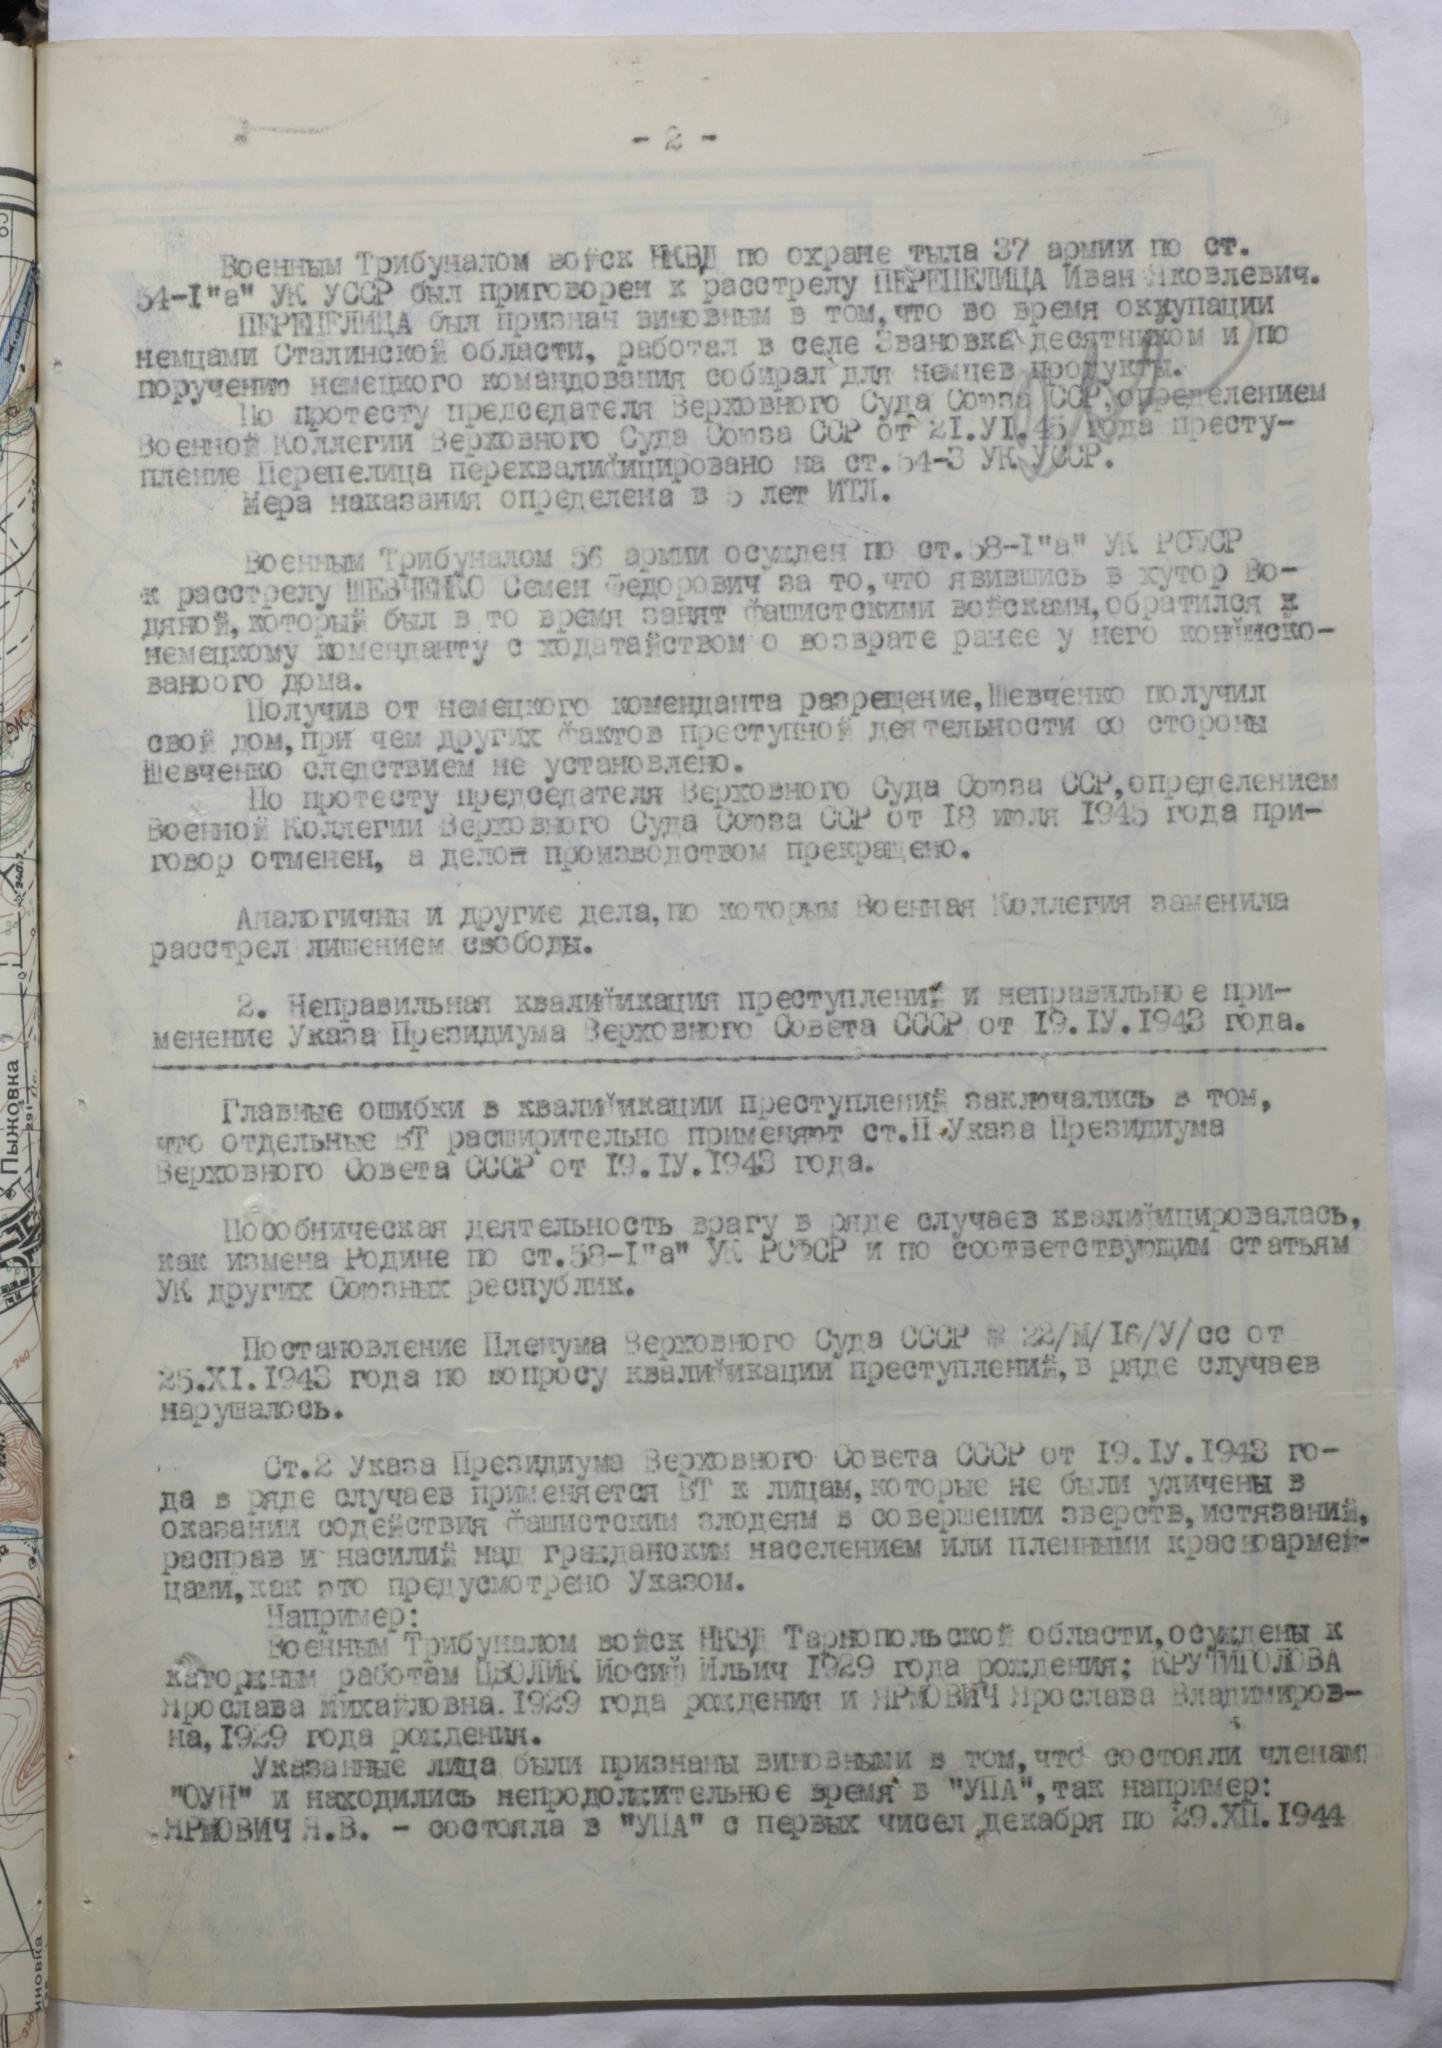 - 2 -
Военным Трибуналом войск НКВД по охране тыла 37 армии по ст.
54-I"а" УК УССР был приговорен к расстрелу ПЕРЕПЕЛИЦА Иван Яковлевич.
ПЕРЕПЕЛИЦА был признан виновным в том, что во время оккупации
немцами Сталинской области, работал в селе Звановка десятником и по
поручению немецкого командования собирал для немцев продукты.
По протесту председателя Верховного Суда Союза ССР, определением
Военной Коллегии Верховного Суда Союза ССР от 21.УI.45 года престу-
пление Перепелица переквалифицировано на ст.54-3 УК УССР.
Мера наказания определена в 5 лет ИТЛ.
Военным Трибуналом 56 армии осужден по ст.58-I"а" УК РСФСР
к расстрелу ШЕВЧЕНКО Семен Федорович за то, что явившись в хутор Во-
дяной, который был в то время занят фашистскими войсками, обратился к
немецкому коменданту с ходатайством о возврате ранее у него конфиско-
ваного дома.
Получив от немецкого коменданта разрещение, Шевченко получил
свой дом, при чем других фактов преступной деятельности со стороны
Шевченко следствием не установлено.
По протесту председателя Верховного Суда Союза ССР, определением
Военной Коллегии Верховного Суда Союза ССР от 18 июля 1945 года при-
говор отменен, а делоп производством прекращено.
Аналогичны и другие дела, по которым Военная Коллегия заменила
расстрел лишением свободы.
2. Неправильная квалификация преступлений и неправильное при-
менение Указа Президиума Верховного Совета СССР от 19.IУ.1943 года.
Главные ошибки в квалификации преступлений заключались в том,
что отдельные ВТ расширительно применяют ст.II Указа Президиума
Верховного Совета СССР от 19.IУ.1943 года.
Пособническая деятельность врагу в ряде случаев квалифицировалась,
как измена Родине по ст.58-I"а" УК РСФСР и по соответствующим статьям
УК других Союзных республик.
Постановление Пленума Верховного Суда СССР № 22/М/16/У/сс от
25.XI.1943 года по вопросу квалификации преступлений, в ряде случаев
нарушалось.
Ст.2 Указа Президиума Верховного Совета СССР от 19.IУ.1943 го-
да в ряде случаев применяется ВТ к лицам, которые не были уличены в
оказании содействия фашистским злодеям в совершении зверств, истязаний,
расправ и насилий над гражданским населением или пленными красноармей-
цами, как это предусмотрено Указом.
Например:
Военным Трибуналом войск НКВД Тарнопольской области, осуждены к
каторжным работам ЦВОЛИК Иосиф Ильич 1929 года рождения; КРУТИГОЛОВА
Ярослава Михайловна. 1929 года рождения и ЯРМОВИЧ Ярослава Владимиров-
на, 1929 года рождения.
Указанные лица были признаны виновными в том, что состояли членам
"ОУН" и находились непродолжительное время в "УПА", так например:
ЯРМОВИЧ Я.В. - состояла в "УПА" с первых чисел декабря по 29.XII.1944
Пыжовка
240
240.7
иновка
250